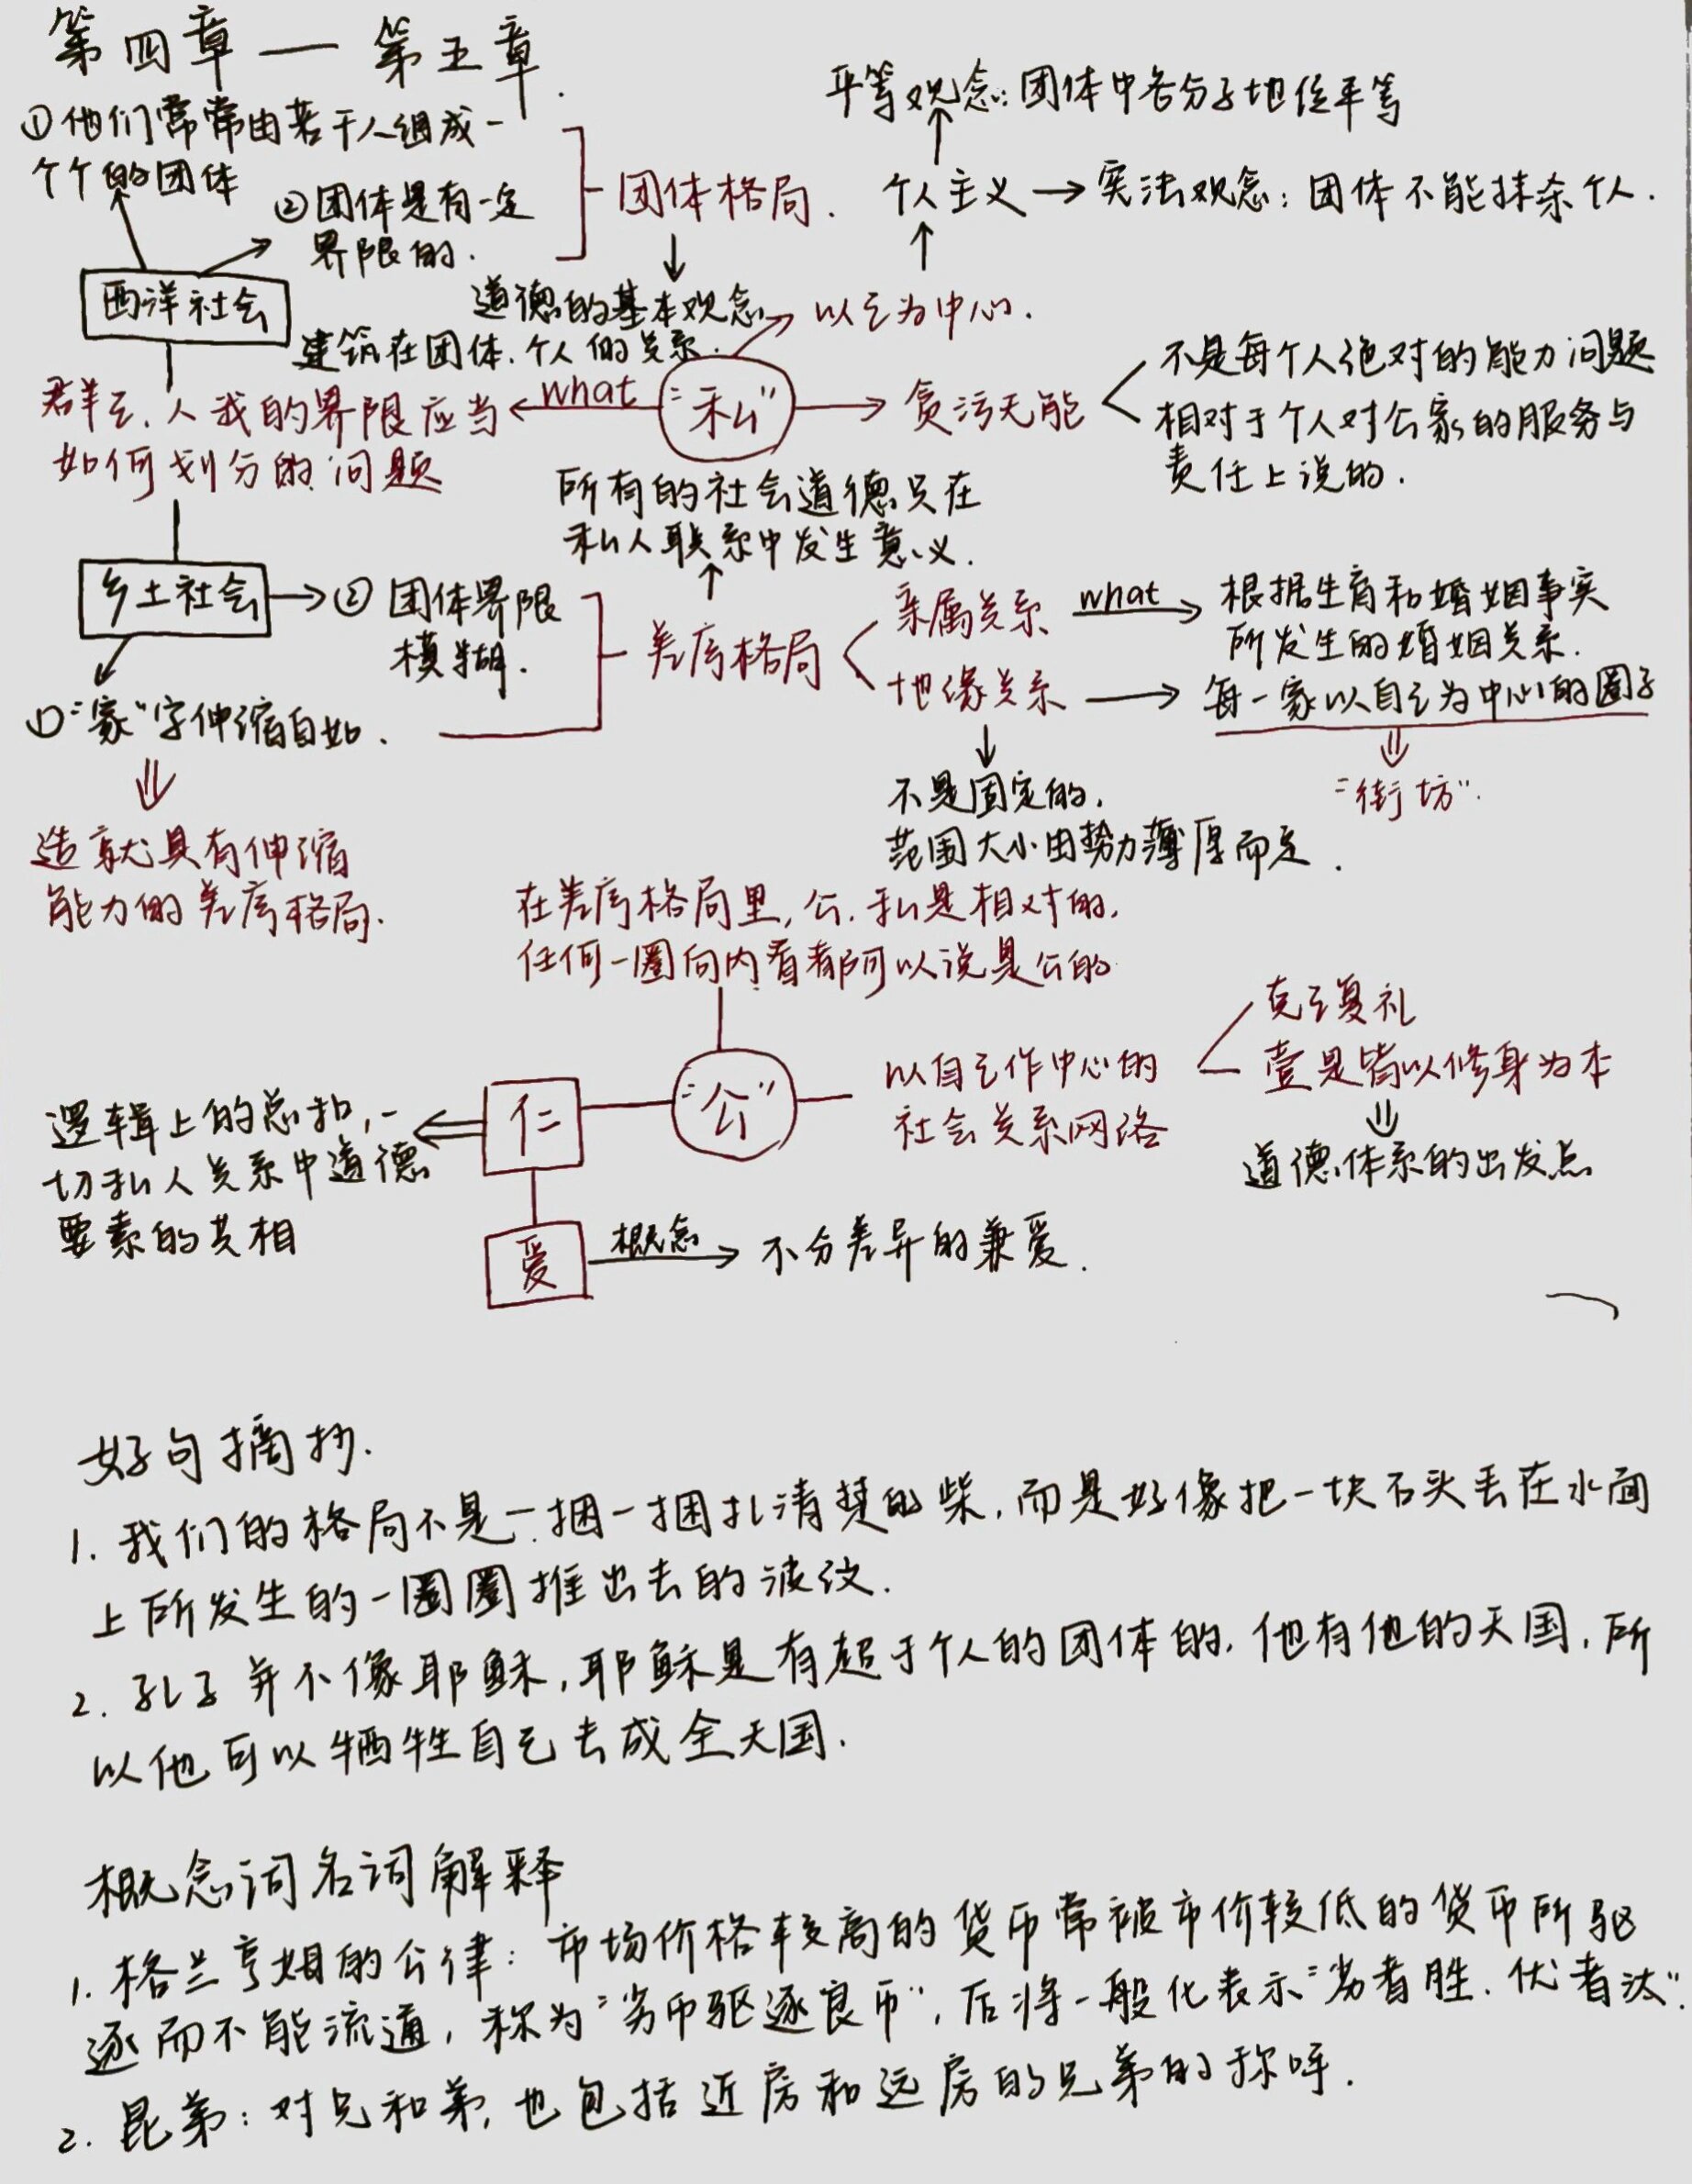 第四章 — 第五章.
①他们常常由若干人组成一
个个的团体
②团体是有一定
界限的.
团体格局.
平等观念:团体中各分子地位平等
个人主义→宪法观念:团体不能抹杀个人.
西洋社会
道德的基本观念
建筑在团体.个人的关系.
以己为中心.
群己.人我的界限应当
如何划分的问题
what
"私"
贪污无能
不是每个人绝对的能力问题
相对于个人对公家的服务与
责任上说的.
所有的社会道德只在
私人联系中发生意义.
乡土社会
②团体界限
模糊.
①"家"字伸缩自如.
差序格局
亲属关系
what
根据生育和婚姻事实
所发生的婚姻关系.
地缘关系
每一家以自己为中心的圈子
"街坊".
不是固定的,
范围大小由势力薄厚而定.
造就具有伸缩
能力的差序格局.
在差序格局里,公.私是相对的,
任何一圈向内看都可以说是公的
"公"
以自己作中心的
社会关系网络
克己复礼
壹是皆以修身为本
道德体系的出发点
仁
逻辑上的总和,一
切私人关系中道德
要素的共相
爱
概念
不分差异的兼爱.
好句摘抄.
1. 我们的格局不是一捆一捆扎清楚的柴,而是好像把一块石头丢在水面
上所发生的一圈圈推出去的波纹.
2. 孔子并不像耶稣,耶稣是有超于个人的团体的,他有他的天国,所
以他可以牺牲自己去成全天国.
概念词名词解释
1. 格兰亨姆的公律:市场价格较高的货币常被市价较低的货币所驱
逐而不能流通,称为"劣币驱逐良币",后将一般化表示"劣者胜.优者汰".
2. 昆弟:对兄和弟,也包括近房和远房的兄弟的称呼.